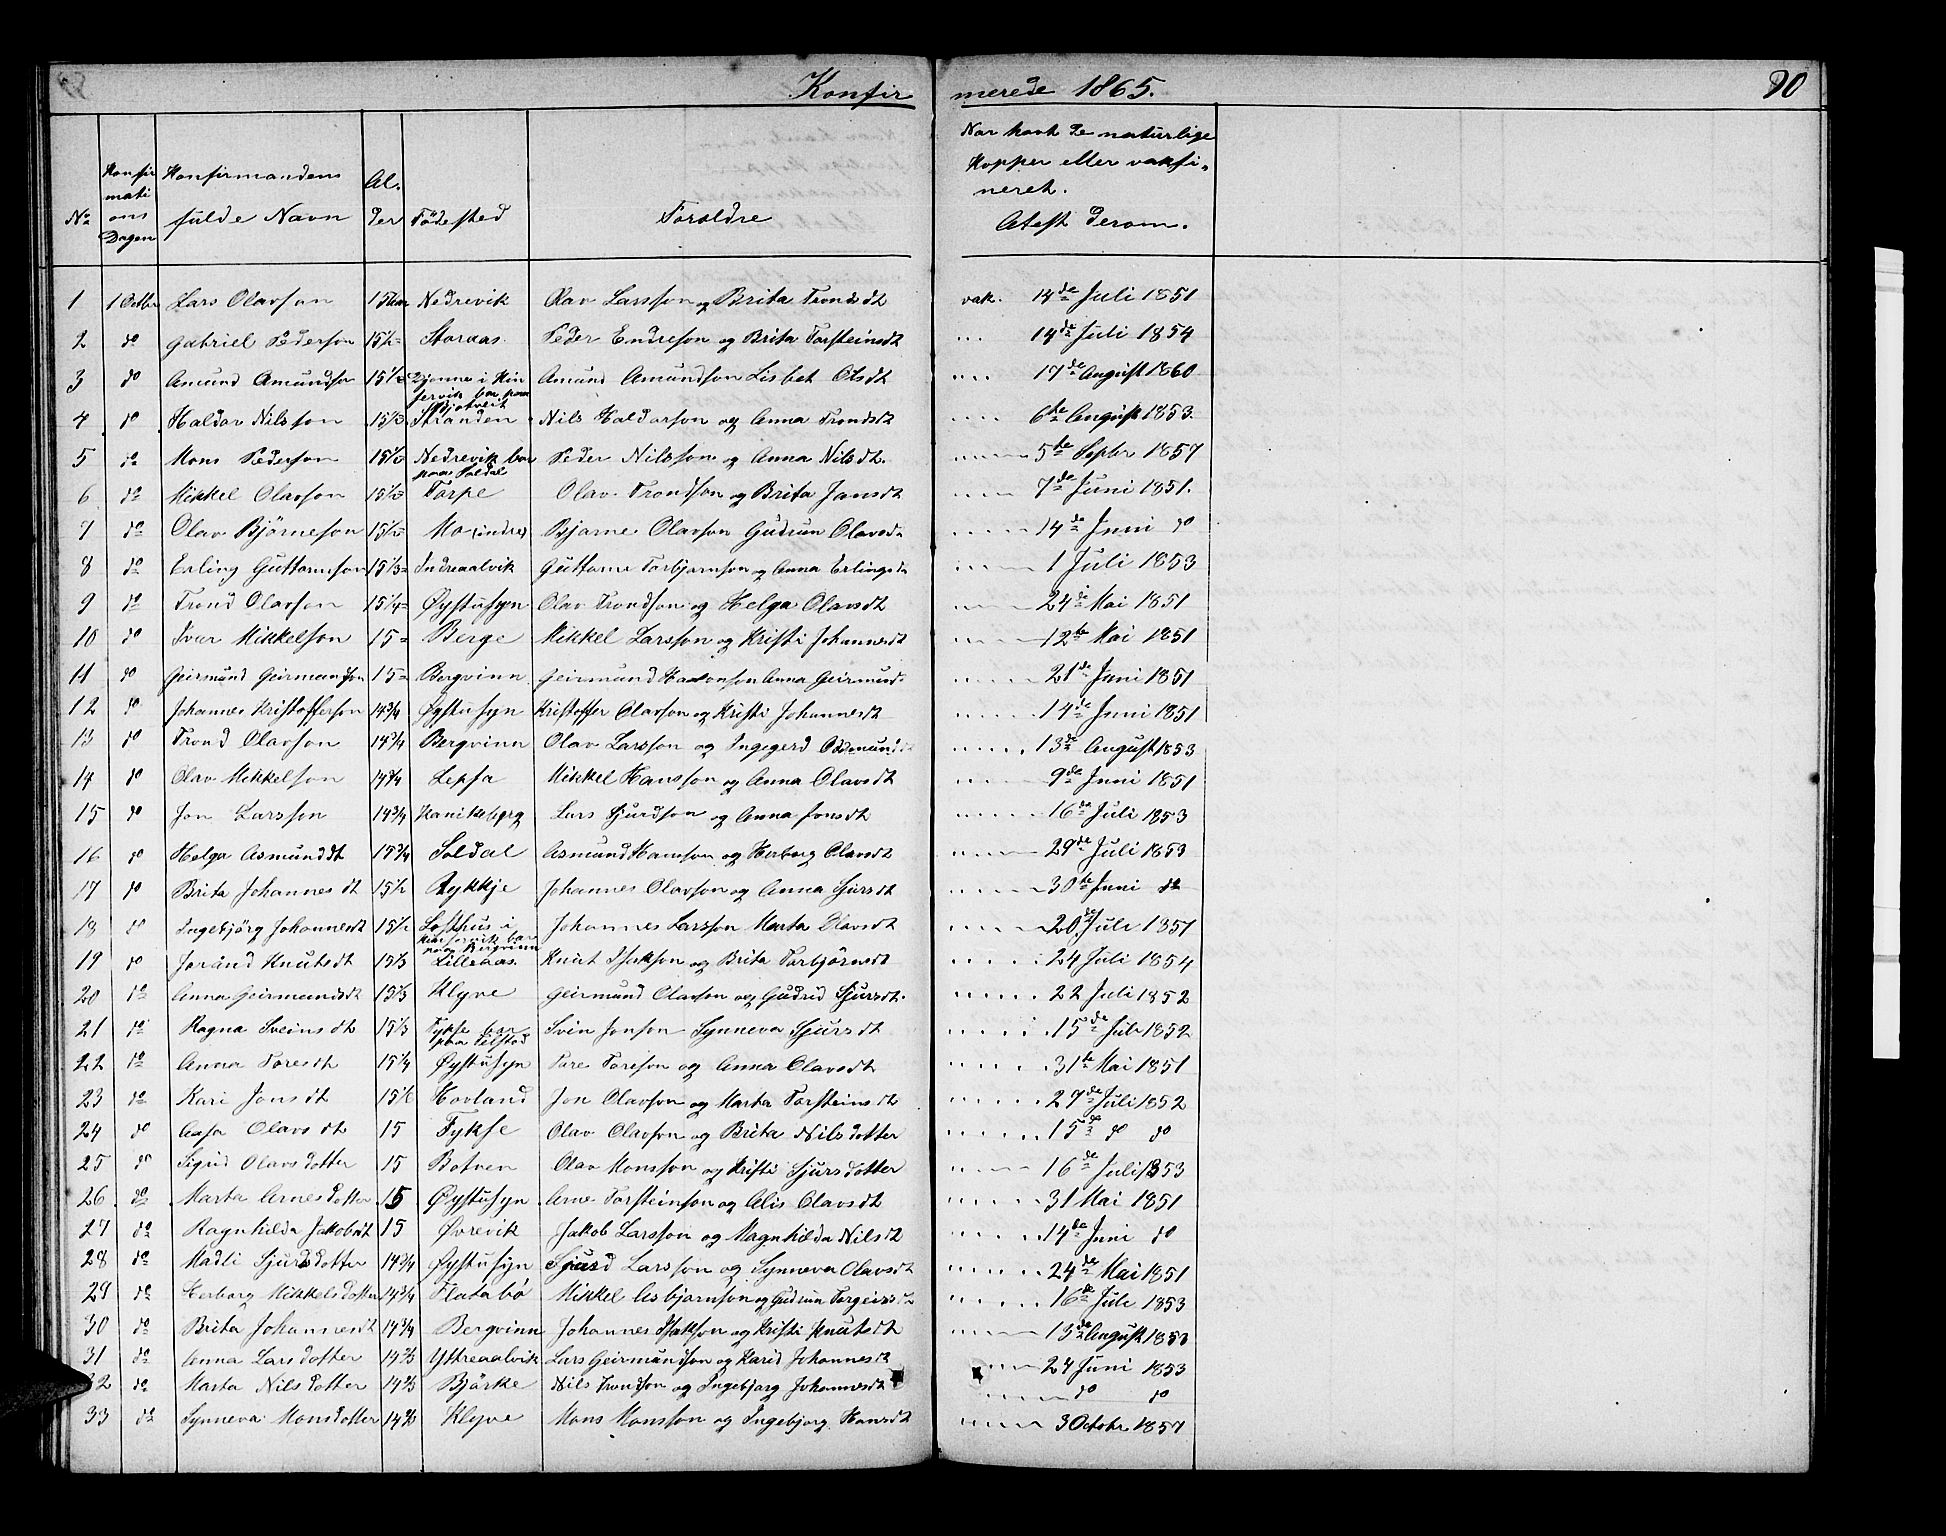 Konfirmerede 1865. 90
No Konfirmations Dagen Konfirmandens fulde Navn Alder Födested Foraldre Nar havt de naturlige Kopper eller vaksineret. Atest derom.
1 1 Octbr Lars Olavson 15 Nedrevik Olav Larsson og Brita Tronds dt vak. 14de Juli 1851
2 do Gabriel Pederson 15½ Storaas. Peder Endreson og Brita Torsteinsdt 14de Juli 1854
3 do Amund Amundson 15½ i Kinservik bor paa Amund Amundson Lisbet Olsdt 17de August 1860
4 do Haldor Nilsson 15⅓ Stranden Nils Haldorson og Anna Trondsdt 6te August 1853.
5 do Mons Pederson 15½ Nedrevik bor paa Soldal Peder Nilsson og Anna Nilsdt. 5te Septbr 1857
6 do Mikkel Olavson 15½ Torpe Olav Trondson og Brita Jonsdt 7de Juni 1851.
7 do Olav Björneson 15½ Mo Bjarne Olavson Gudrun Olavsd 14de Juni do
8 do Erling Guttormson 15⅓ Indreaalvik Guttorme Torbjornson og Anna Erlingsd 1 Juli 1853
9 do Trond Olavson 15¼ Øystusyn Olav Trondson og Helga Olavsdt 24de Mai 1851
10 do Ivar Mikkelson 15 Berge Mikkel Larsson og Kristi Johannesdt 12te Mai 1851
11 do Geirmund Geirmundson 15 Bergvinn Geirmund Haavonson Anna Geirmund. 21de Juni 1851
12 do Johannes Kristofferson 14¾ Øystusyn Kristoffer Olavson og Kristi Johannesdt 14de Juni 1851
13 do Trond Olavson 14¾ Bergvinn Olav Larsson og Ingegerd Osmundsdt 13de August 1853
14 do Olav Mikkelson 14¾ Lepsa Mikkel Hansson og Anna Olavsdt 9de Juni 1851
15 do Jon Larsson 14¾ Kanikeberg Lars Sjurdson og Anna Jonsdt 16de Juli 1853
16 do Helga Asmunddt 15¾ Soldal Asmund Hansson og Herborg Olavsdt 29de Juli 1853
17 do Brita Johannesdt 15½ Rykkje Johannes Olavson og Anna Sjursdt 30te Juni do
18 do Ingebjörg Johannesdt 15½ Lofthus i Kinservik bor paa Bergvinn Johannes Larsson Marta Olavsdt 20de Juli 1857
19 do Jorund Knutsdt 15⅓ Lilleaas. Knut Isakson og Brita Torbjörnsdt 24 Juli 1854
20 do Anna Geirmundsdt 15⅓ Klyve Geirmund Olavson og Gudrid Sjursdt. 22 Juli 1852
21 do Ragna Sveinsdt 15⅓ Fykse bor paa Svin Jonson Synneva Sjursdt 15de Juli 1852
22 do Anna Toresdt 15¼ Øystusyn Tore Toreson og Anna Olavsdt 31te Mai 1851
23 do Kari Jonsdt Hovland Jon Olavson og Marta Torsteinsdt 27de Juli 1852
24 do Aasa Olavsdt 15 Fykse Olav Olavson og Brita Nilsdotter 15de do do
25 do Sigrid Olavsdotter 15 Botnen Olav Monsson og Kristi Sjursdotter 16de Juli 1853
26 do Marta Arnesdotter 15 Øystusyn Arne Torsteinson og Alis Olavsdt 31 Mai 1851
27 do Ragnhilda Jakobsdt 15 Øvrevik Jakob Larsson og Magnhilda Nilsdt 14de Juni do
28 do Madli Sjursdotter 14¾ Øystusyn Sjurd Larsson og Synneva Olavsdt 24de Mai 1851
29 do Herborg Mikkelsdotter 14¾ Flatabö Mikkel Asbjornson og Gudrun Torgeirsdt 16de Juli 1853
30 do Brita Johannesdt 14¾ Bergvinn Johannes Isakson og Kristi Knutsdt 13de August 1853
31 do Anna Larsdotter 14⅔ Ystreaalvik Lars Geirmundson og Karid Johannesdt 24 Juni 1853
32 do Marta Nilsdotter 14⅔ Bjärke Nils Trondson og Ingebjorg Johannesdt do do
33 do Synneva Monsdotter 14⅔ Klyve Mons Monsson og Ingebjorg Hansdt 3 Octobr 1857